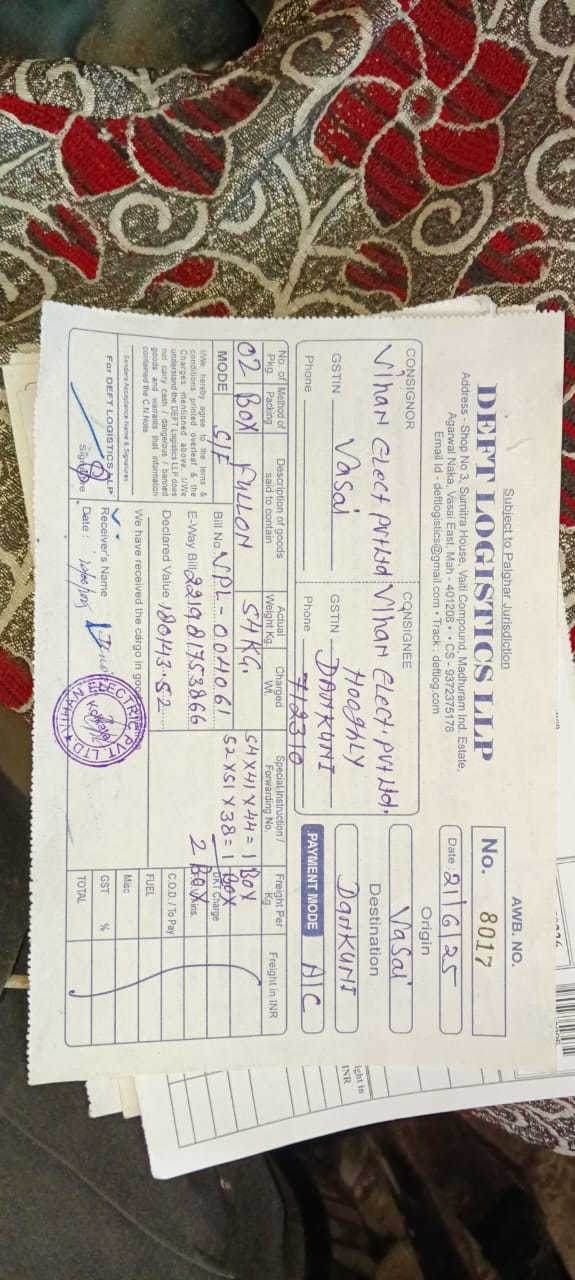 Subject to Palghar Jurisdiction
DEFT LOGISTICS LLP
Address - Shop No 3, Sumitra House, Vaiti Compound, Madhuram Ind. Estate,
Agarwal Naka, Vasai East, Mah - 401208 • • CS - 9372375178
Email Id - deftlogistics@gmail.com • Track : deftlog.com
AWB. NO.
No. 8017
Date : 21/6/25
CONSIGNOR
Vihan Elect Pvt Ltd
Vasai
GSTIN
Phone
CONSIGNEE
Vihan Elect. Pvt Ltd.
HOOGHLY
GSTIN DANKUNI
Phone 712310
Origin
Vasai
Destination
DANKUNI
PAYMENT MODE A/C
No. of Pkg. Method of Packing Description of goods said to contain Actual Weight Kg. Charged Wt. Special Instruction / Forwarding No. Freight Per Kg. Freight in INR
02 BOX 54 KG. 54 X 41 X 44 = 1 BOX
52 X 51 X 38 = 1 BOX
2 BOX
MODE S/F
Bill No. VPL - 004061
E-Way Bill 221981753866
Declared Value 18043.52
I/We hereby agree to the terms &
conditions printed overleaf & the
Charges mentioned above. I/We
understand the DEFT Logistics LLP does
not carry cash / dangerous / banned
goods and warrants that information
contained the C.N.Note
Senders Acceptance Name & Signatures
We have received the cargo in good
For DEFT LOGISTICS LLP
Signature
Receiver's Name
Date :
DKT Charge
C.O.D. / To Pay
FUEL
Misc
GST %
TOTAL
ight in
INR